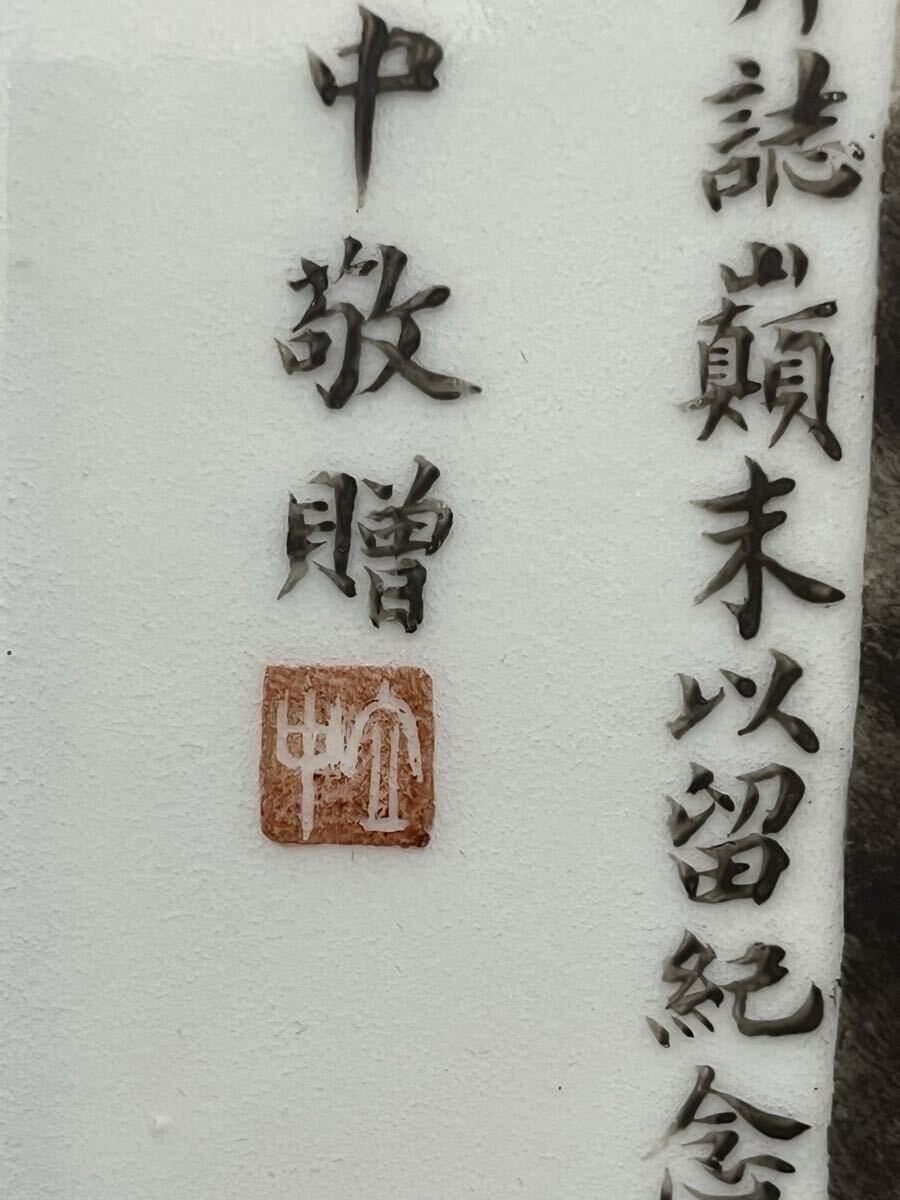 誌巔末以留紀念
中敬贈